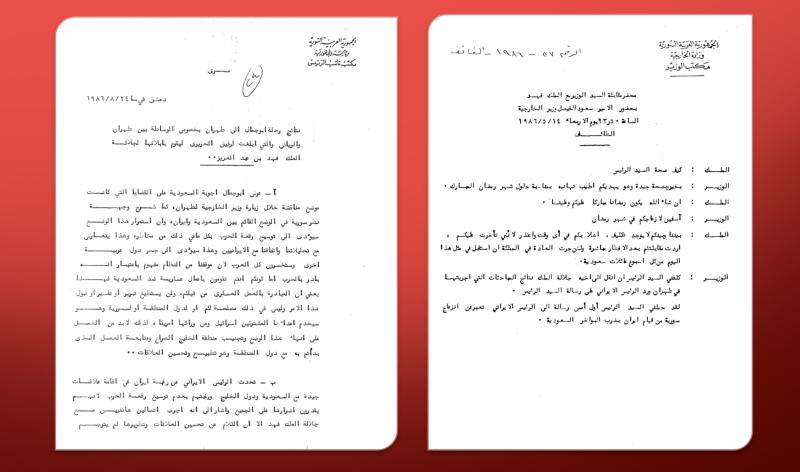 الجمهورية العربية السورية
وزارة الخارجية
مكتب الوزير
الرقم ٥٧ - ١٩٨٦ - الطائف
محضر مقابلة السيد الوزير مع الملك فهد
بحضور الامير سعود الفيصل وزير الخارجية
يوم الاربعاء ١٩٨٦/٥/١٤
الطائف
الملك : كيف صحة السيد الرئيس
الوزير : بخير وصحة جيدة وهو يهديكم اطيب تهانيه بمناسبة حلول شهر رمضان المبارك .
الملك : ان شاء الله يكون رمضان مباركا عليكم وعلينا .
الوزير : آسفين لازعاجكم في شهر رمضان
الملك : بيننا وبينكم لا يوجد تكليف ، اهلا بكم في أي وقت واعتذر لأني تأخرت عليكم ،
اردت مقابلتكم بعد الافطار مباشرة ولكن جرت العادة في المملكة ان استقبل في مثل هذا
اليوم من كل اسبوع عائلات سعودية .
الوزير : كلفني السيد الرئيس ان انقل الى اخيه جلالة الملك نتائج المباحثات التي اجريتها
في طهران ورد الرئيس الايراني على رسالة السيد الرئيس .
لقد حملني السيد الرئيس أول أمس رسالة الى الرئيس الايراني تعبر عن انزعاج
سورية من قيام ايران بضرب البواخر السعودية .
الجمهورية العربية السورية
مكتب نائب الرئيس
سري
دمشق في ١٩٨٦/٨/٢٤
نتائج رحلة ابو جمال الى طهران بخصوص الوساطة بين طهران
والرياض والتي ابلغت لرفيق الحريري ليقوم بابلاغها لجلالة
الملك فهد بن عبد العزيز ..
أ - عرض ابو جمال اجوبة السعودية على القضايا التي كانت
موضع مناقشة خلال زيارة وزير الخارجية لطهران، كما شرح وجهة
نظر سورية في الوضع القائم بين السعودية وايران، وان استمرار هذا الوضع
سيؤدي الى توسيع رقعة الحرب بكل ما في ذلك من مخاطر، وهذا يتعارض
مع تحليلاتنا واتفاقنا مع الايرانيين وهذا سيؤدي الى خسر دول عربية
اخرى وستخسرون كل العرب لان موقفنا من النظام مفهوم باعتباره
بادر بالحرب اما كونكم انتم تقومون باعمال عسكرية ضد السعودية فهذا
يعني ان المبادرة بالفعل العسكري من قبلكم، ولن يستطيع تبرير او تفسير او قبول
هذا الامر وليس في ذلك مصلحة لكم او لدول المنطقة او لسورية وهو
سيخدم اعداءنا المشتركين اسرائيل ومن ورائها امريكا، لذلك لابد من العمل
على انهاء هذا الوضع وتجنيب منطقة الخليج الصراع ومتابعة العمل الذي
بدأتم به مع دول المنطقة وهو تطبيع وتحسين العلاقات ..
ب - تحدث الرئيس الايراني عن رغبة ايران في اقامة علاقات
جيدة مع السعودية ودول الخليج ورغبتهم بعدم توسيع رقعة الحرب لانهم
يقدرون اضرارها على الجميع واشار الى انه اجرى اتصالين هاتفيين مع
جلالة الملك فهد الا ان الكلام عن تحسين العلاقات وتطويرها لم يترجم